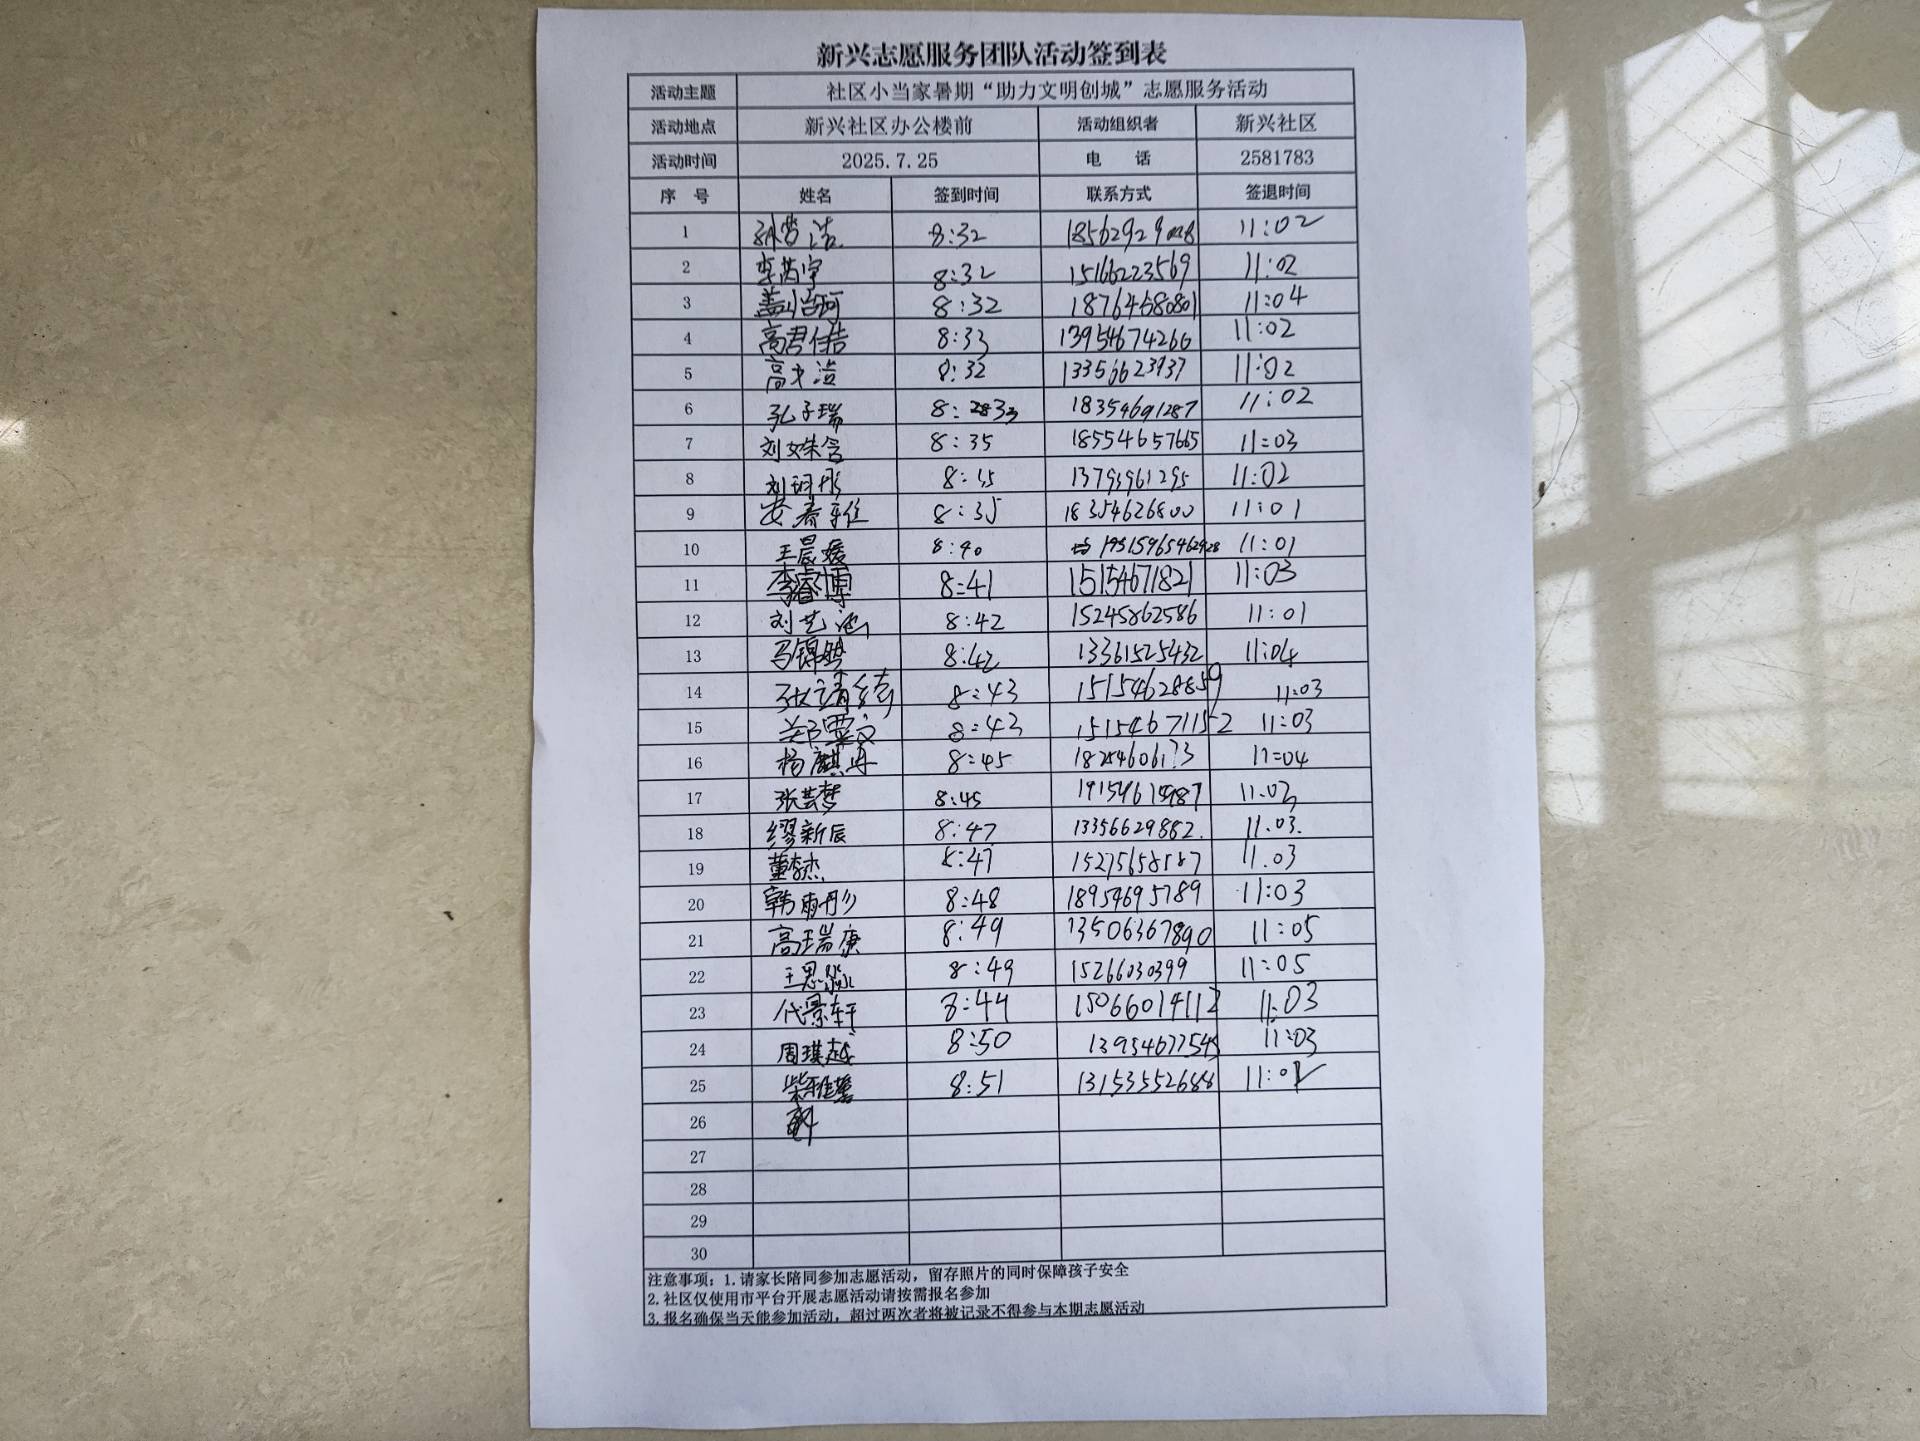 新兴志愿服务团队活动签到表
活动主题 社区小当家暑期“助力文明创城”志愿服务活动
活动地点 新兴社区办公楼前 活动组织者 新兴社区
活动时间 2025.7.25 电 话 2581783
序 号 姓名 签到时间 联系方式 签退时间
1 8:32 11:02
2 李芮宇 8:32 15166223569 11:02
3 8:32 18764580801 11:04
4 高君佶 8:33 13954674266 11:02
5 8:32 13356623937 11:02
6 孔子瑞 8: 18354691287 11:02
7 刘姝含 8:35 18554657665 11:03
8 刘玥彤 13793961295 11:02
9 安春雅 8:35 18354626800 11:01
10 王晨媛 8:40 11:01
11 李睿博 8:41 15154671821 11:03
12 刘艺涵 8:42 15245862586 11:01
13 马锦皓 8:42 13361525432 11:04
14 张靖绮 8:43 15154628859 11:03
15 8:43 15154671152 11:03
16 杨麒冉 8:45 11:04
17 张芸梦 8:45 11.03
18 缪新辰 8:47 13356629882. 11.03.
19 董李杰 8:47 11.03
20 韩雨彤 8:48 18954695789 11:03
21 高瑞庚 8:49 13506367890 11:05
22 王思淼 8:49 15266030399 11:05
23 代景轩 8:44 11:03
24 周琪越 8:50 11:03
25 柴雅馨 8:51 13153552688
26
27
28
29
30
注意事项：1.请家长陪同参加志愿活动，留存照片的同时保障孩子安全
2.社区仅使用市平台开展志愿活动请按需报名参加
3.报名确保当天能参加活动，超过两次者将被记录不得参与本期志愿活动